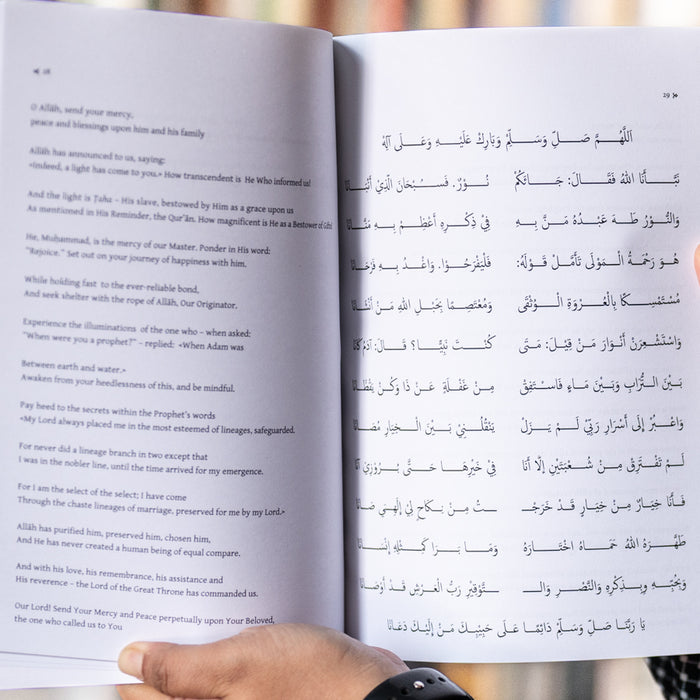 28
O Allāh, send your mercy,
peace and blessings upon him and his family
Allāh has announced to us, saying:
«Indeed, a light has come to you.» How transcendent is He Who informed us!
And the light is Ṭaha – His slave, bestowed by Him as a grace upon us
As mentioned in His Reminder, the Qur'ān. How magnificent is He as a Bestower of Gifts!
He, Muḥammad, is the mercy of our Master. Ponder in His word:
"Rejoice." Set out on your journey of happiness with him.
While holding fast to the ever-reliable bond,
And seek shelter with the rope of Allāh, Our Originator.
Experience the illuminations of the one – when asked:
"When were you a prophet?" – replied: «When Adam was
Between earth and water.»
Awaken from your heedlessness of this, and be mindful.
Pay heed to the secrets within the Prophet's words
«My Lord always placed me in the most esteemed of lineages, safeguarded.
For never did a lineage branch in two except that
I was in the nobler line, until the time arrived for my emergence.
For I am the select of the select; I have come
Through the chaste lineages of marriage, preserved for me by my Lord.»
Allāh has purified him, preserved him, chosen him,
And He has never created a human being of equal compare.
And with his love, his remembrance, his assistance and
His reverence – the Lord of the Great Throne has commanded us.
Our Lord! Send Your Mercy and Peace perpetually upon Your Beloved,
the one who called us to You
29
اَللّٰهُمَّ صَلِّ وَسَلِّمْ وَبَارِكْ عَلَيْهِ وَعَلَى آلِهْ
نَبَّأَنَا اللهُ فَقَالَ: جَاءَكُمْ نُورٌ. فَسُبْحَانَ الَّذِي أَنْبَانَا
وَالنُّورُ طَهَ عَبْدُهُ مَنَّ بِهِ فِي ذِكْرِهِ أَعْظِمْ بِهِ مَنَّانَا
هُوَ رَحْمَةُ الْمَوْلَى تَأَمَّلْ قَوْلَهُ: فَلْيَفْرَحُوا. وَاغْدُ بِهِ فَرْحَانَا
مُسْتَمْسِكًا بِالْعُرْوَةِ الْوُثْقَى وَمُعْتَصِمًا بِحَبْلِ اللهِ مَنْ أَنْشَانَا
وَاسْتَشْعِرَنْ أَنْوَارَ مَنْ قِيلَ: مَتَى كُنْتَ نَبِيًّا؟ قَالَ: آدَمُ كَانَا
بَيْنَ التُّرَابِ وَبَيْنَ مَاءٍ فَاسْتَفِقْ مِنْ غَفْلَةٍ عَنْ ذَا وَكُنْ يَقْظَانَا
وَاعْبُرْ إِلَى أَسْرَارِ رَبِّي لَمْ يَزَلْ يَنْقُلُنِي بَيْنَ الْخِيَارِ مُصَانَا
لَمْ تَفْتَرِقْ مِنْ شُعْبَتَيْنِ إِلَّا أَنَا فِي خَيْرِهَا حَتَّى بُرُوزِيَ آنَا
فَأَنَا خِيَارٌ مِنْ خِيَارٍ قَدْ خَرَجْـ ـتُ مِنْ نِكَاحٍ لِي إِلَهِي صَانَا
طَهَّرَهُ اللهُ حَمَاهُ اخْتَارَهُ وَمَا بَرَا كَمِثْلِهِ إِنْسَانَا
وَبِحُبِّهِ وَبِذِكْرِهِ وَالنَّصْرِ وَالـ ـتَّوْقِيرِ رَبُّ الْعَرْشِ قَدْ أَوْصَانَا
يَا رَبَّنَا صَلِّ وَسَلِّمْ دَائِمًا عَلَى حَبِيبِكَ مَنْ إِلَيْكَ دَعَانَا